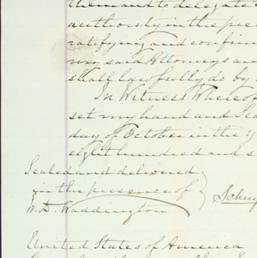 them and to delegate
authority in the pre
ratifying and confir
my said Attorneys a
shall lawfully do by
In Witness Whereof
set my hand and Sea
day of October in the y
eight hundred and s
Sealed and delivered
in the presence of
W. D. Waddington
Schuy
United States of America